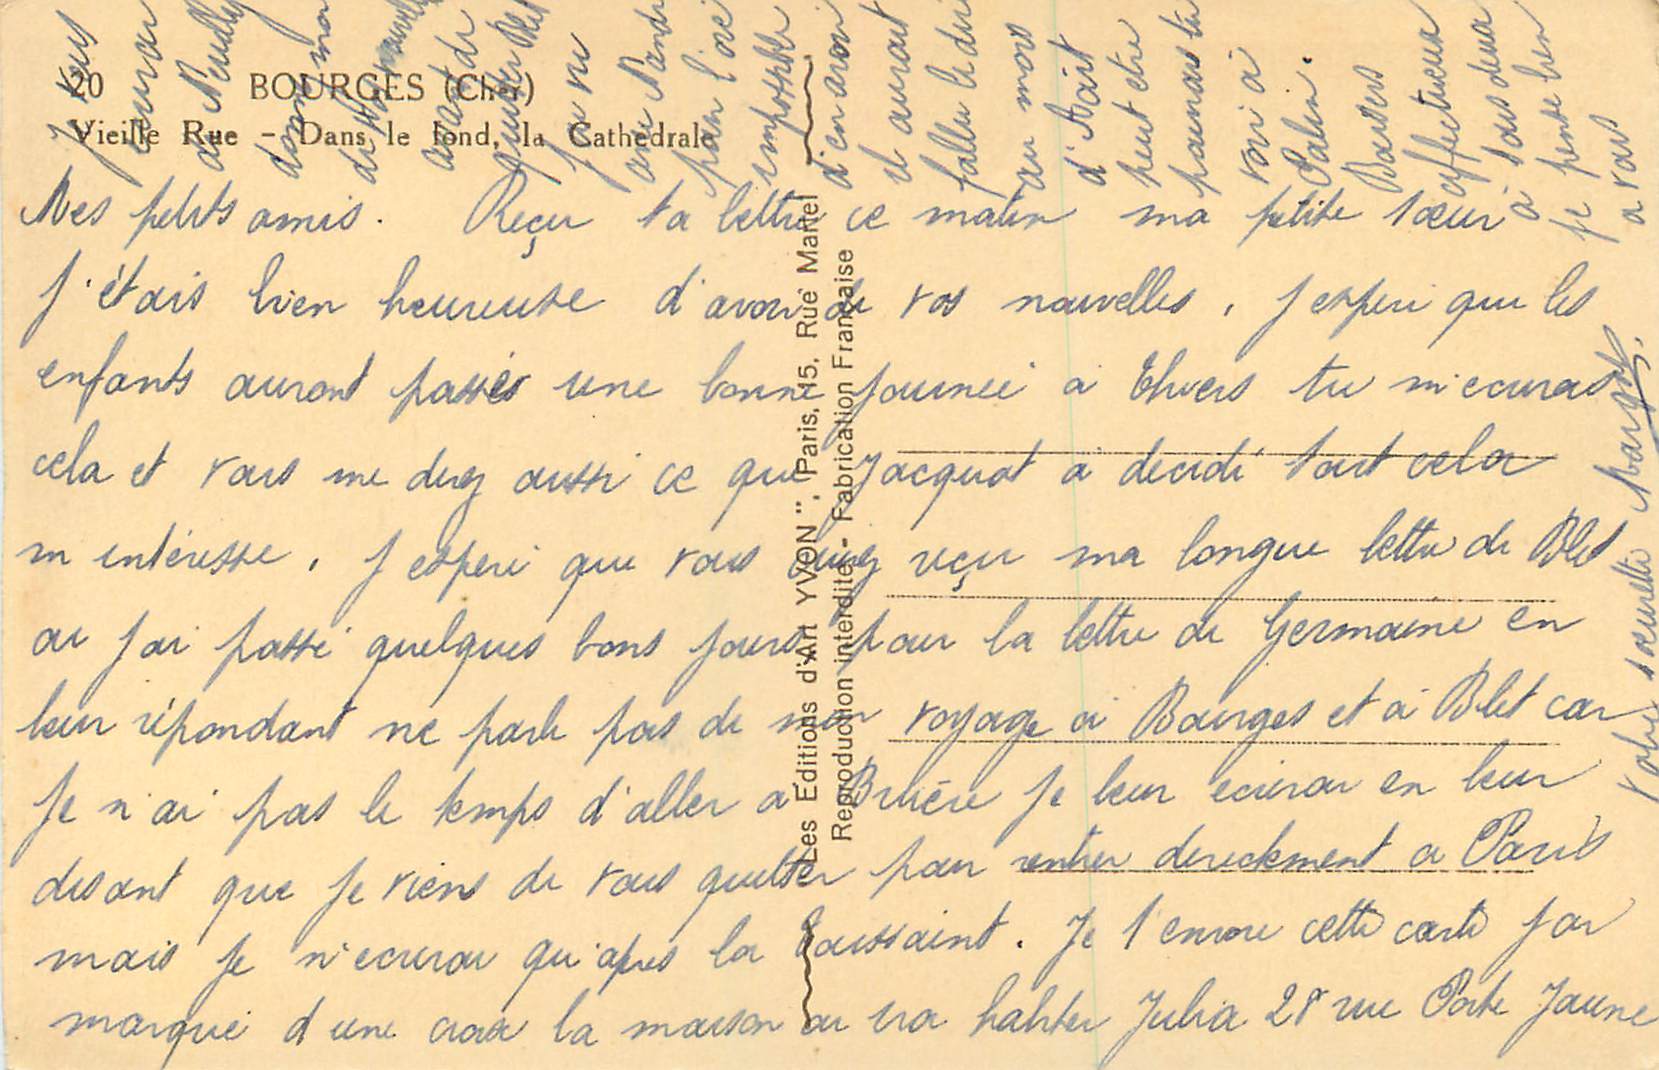 20 BOURGES (Cher)
Vieille Rue - Dans le fond, la Cathédrale
Mes petits amis. Reçu ta lettre ce matin ma petite sœur
j'étais bien heureuse d'avoir de vos nouvelles, j espere que les
enfants auront passés une bonne journée a Thiers tu m'ecriras
cela et vous me direz aussi ce que Jacquot a décidé tout cela
m intéresse. J espere que vous avez reçu ma longue lettre de Blet
ou j'ai passé quelques bons jours, pour la lettre de Germaine en
leur répondant ne parle pas de mon voyage à Bourges et à Blet car
je n'ai pas le temps d'aller a Bruère je leur ecrirai en leur
disant que je viens de vous quitter pour rentrer directement a Paris
mais je n'ecrirai qu'apres la Toussaint. Je t'envoie cette carte j'ai
marqué d une croix la maison ou ira habiter Julia 28 rue Porte Jaune
Je vous
ecrirai
a Neuilly
avant de
quitter Blet
j ai vu
impossible
d'en avoir
il aurait
fallu le dire
au mois
d'Aout
peut etre
pourrais tu
voir à
Salin.
Baisers
affectueux
à tous deux
je pense bien
a vous
Votre sœurette Margot.
Les Editions d'Art "YVON", Paris, 15, Rue Martel
Reproduction interdite - Fabrication Française